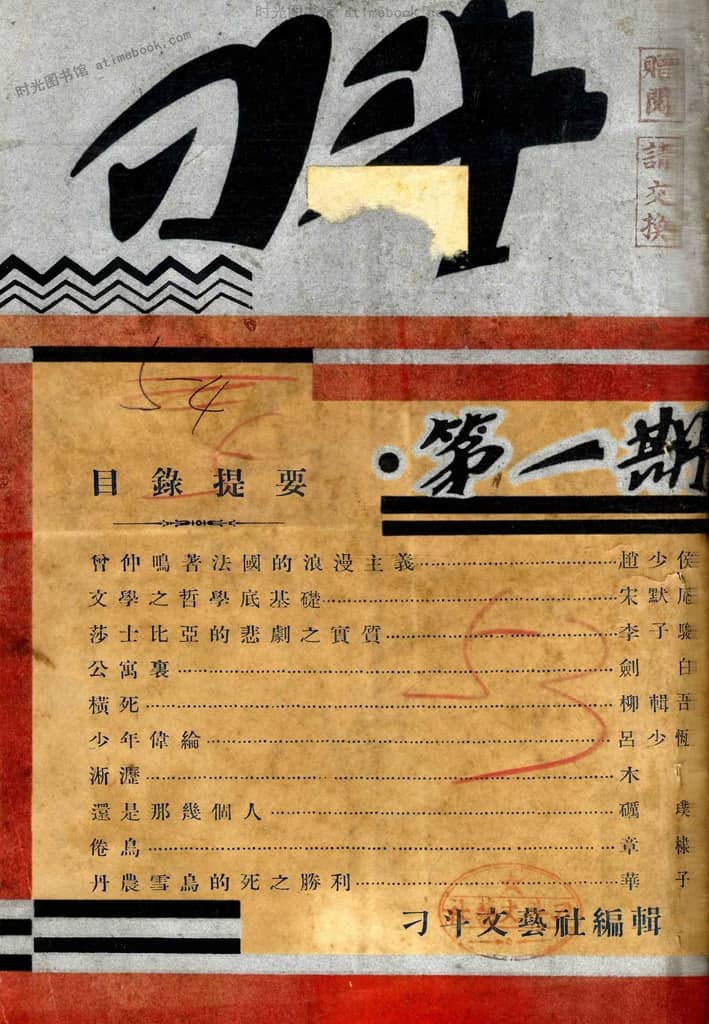 时光图书馆 atimebook.com
时光图书馆 atimebook.com
刁斗
贈閱
請交換
54
·第一期
目錄提要
曾仲鳴著法國的浪漫主義……趙少侯
文學之哲學底基礎……宋默庵
莎士比亞的悲劇之實質……李子駿
公寓裏……劍白
橫死……柳輯吾
少年偉綸……呂少恆
淅瀝……木
還是那幾個人……礪璞
倦鳥……章棣
丹農雪鳥的死之勝利……華子
刁斗文藝社編輯